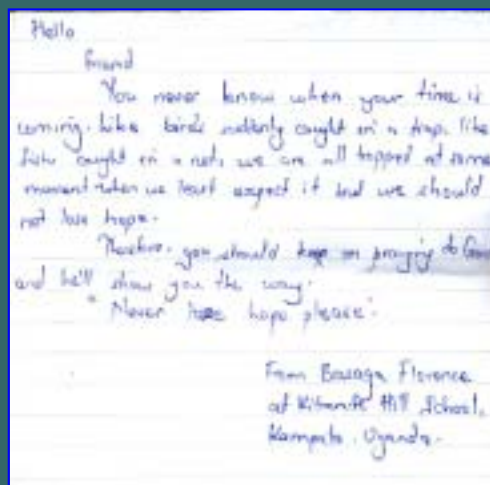 Hello
friend
You never know when your time is
coming. Like birds suddenly caught in a trap, like
fish caught in a net, we are all trapped at some
moment when we least expect it but we should
not lose hope.
Therefore, you should keep on praying to God
and he'll show you the way.
"Never lose hope please".
From Florence
at Hill School,
Kampala, Uganda.